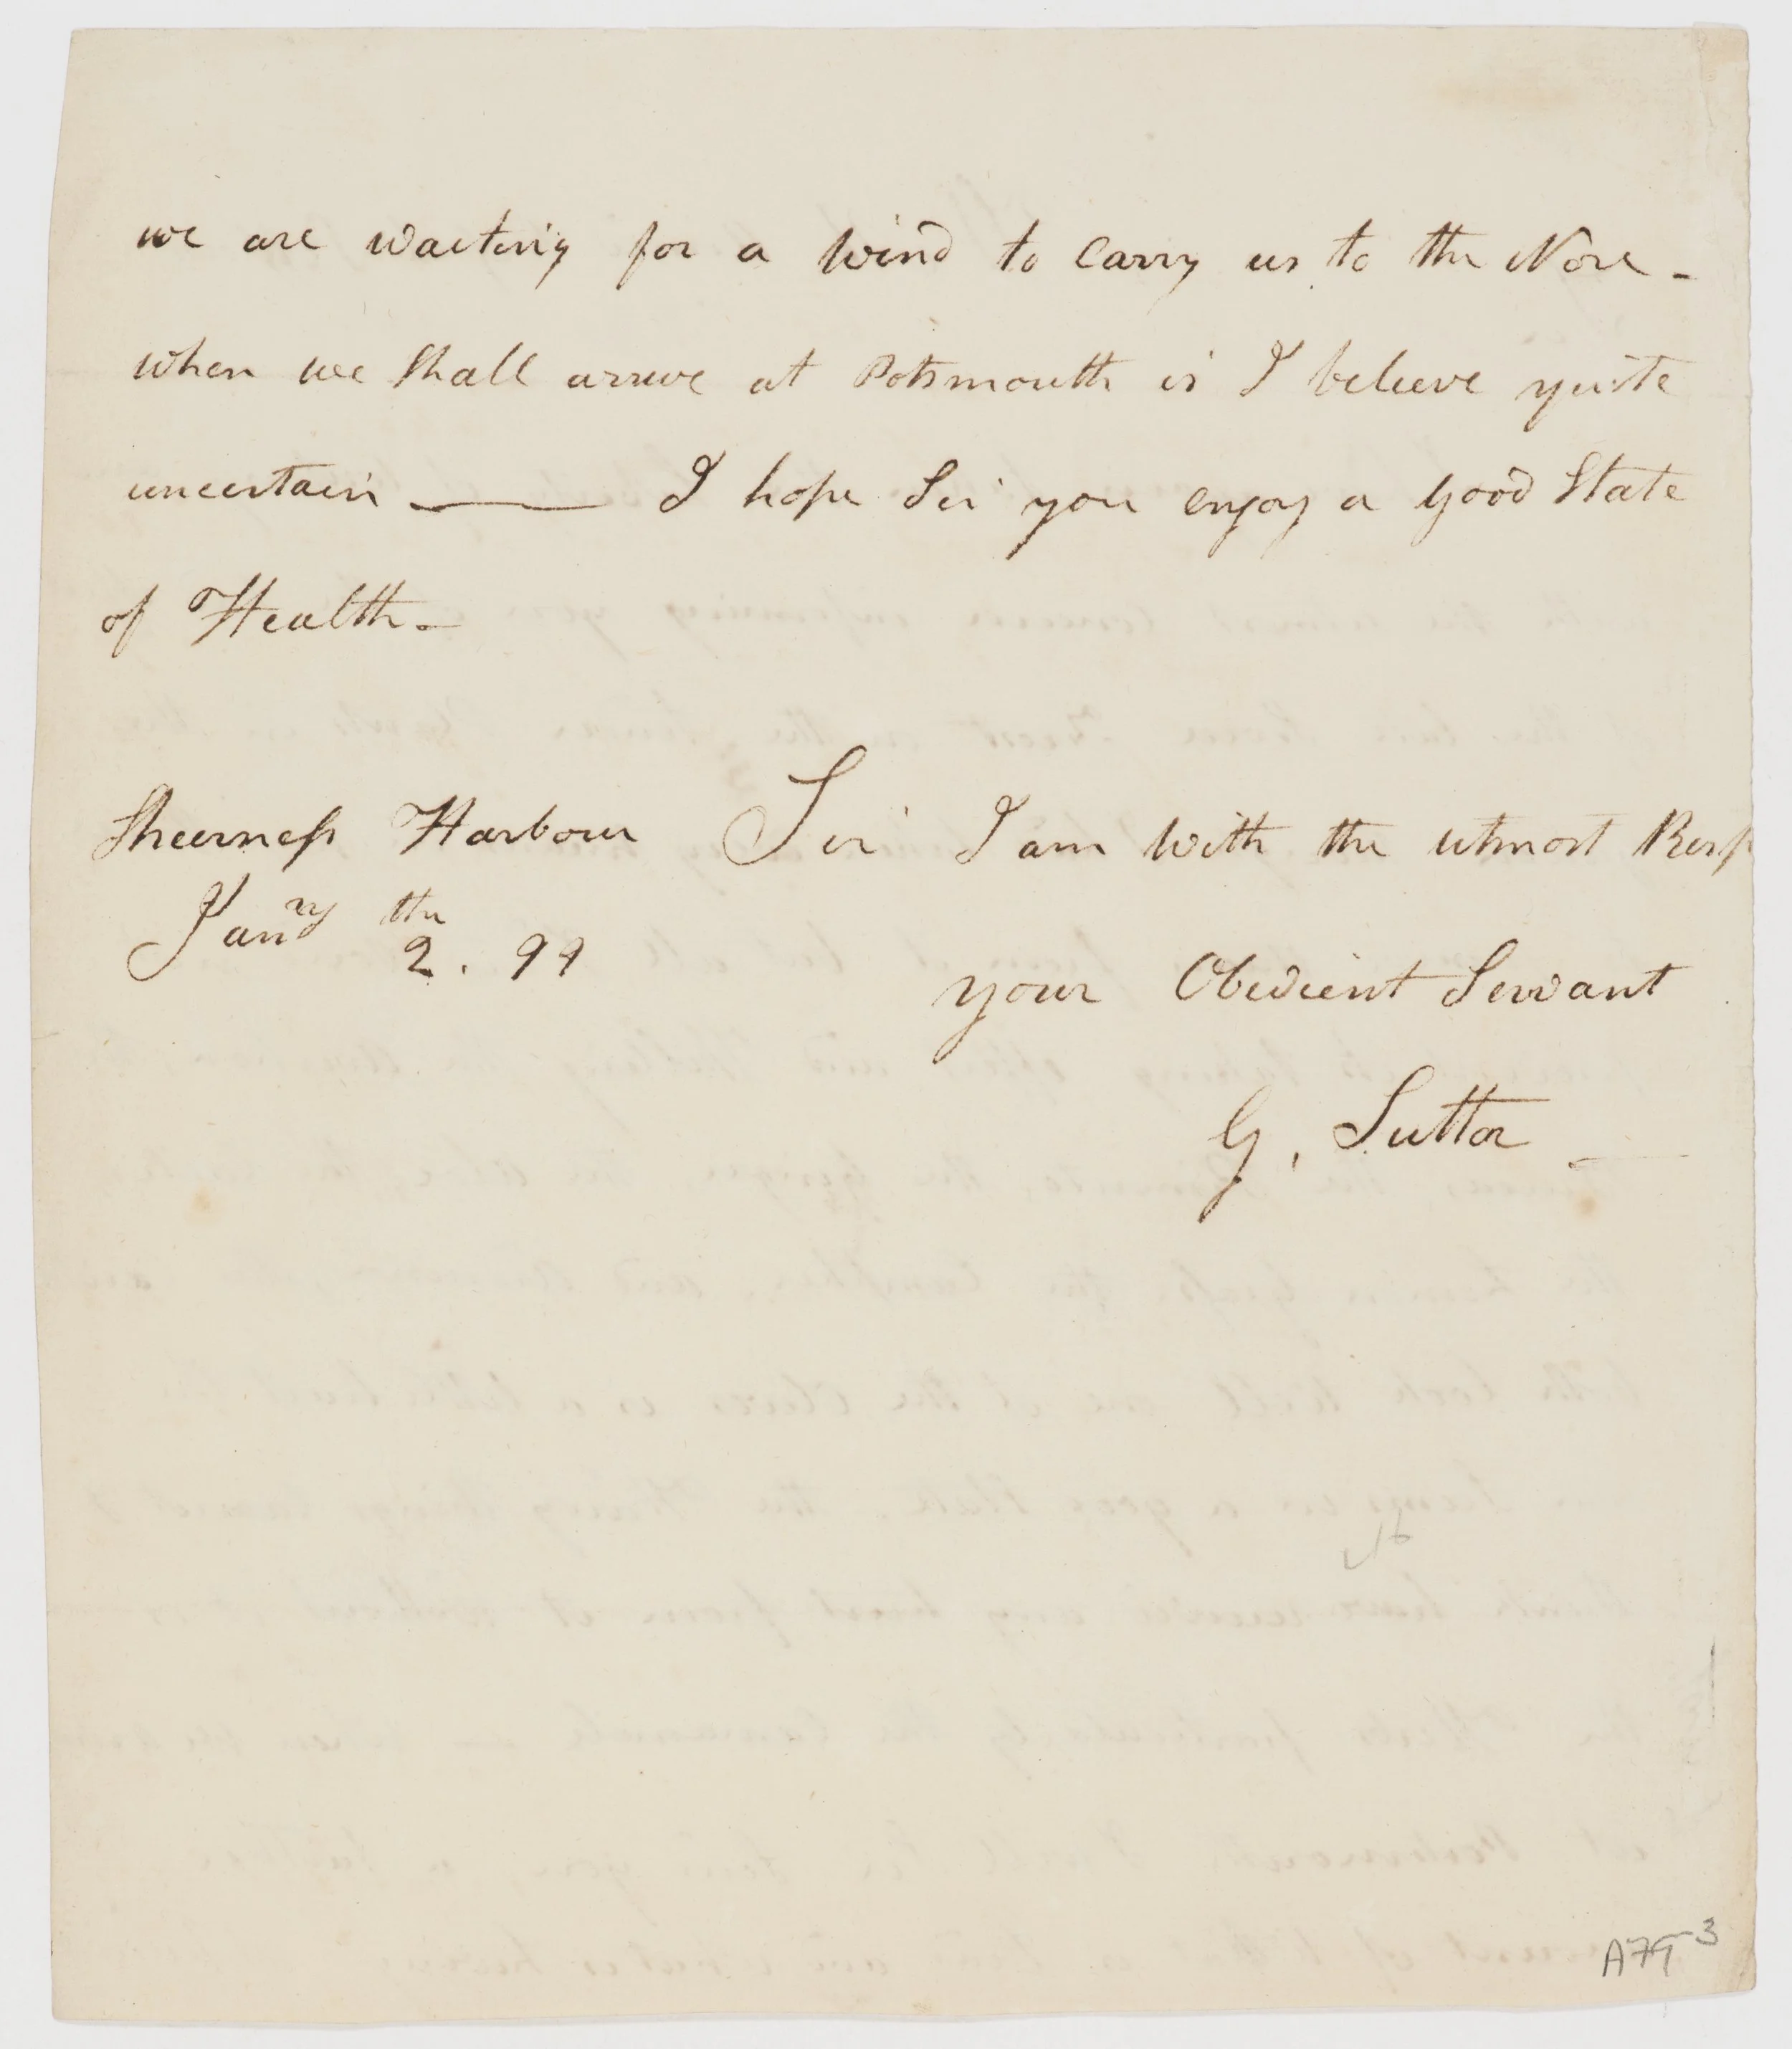 we are waiting for a wind to carry us to the Nore -
when we shall arrive at Potsmouth is I believe quite
uncertain —— I hope Sir you enjoy a good State
of Health -
Sheerness Harbour Sir I am with the utmost Resp
Janry the 2. 99
your Obedient Servant
G. Suttor
A79-3